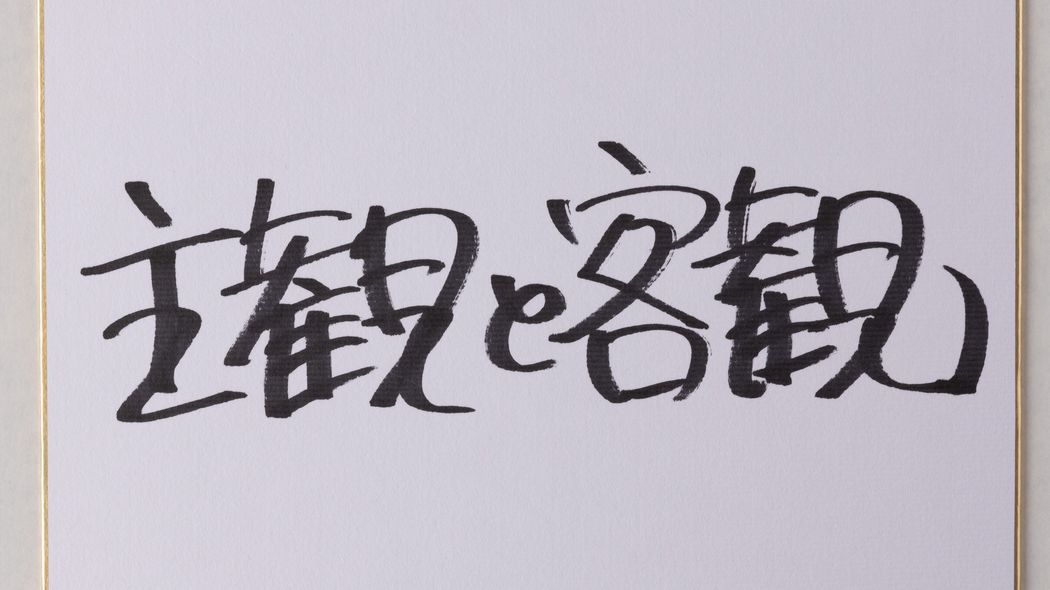 主観と客観